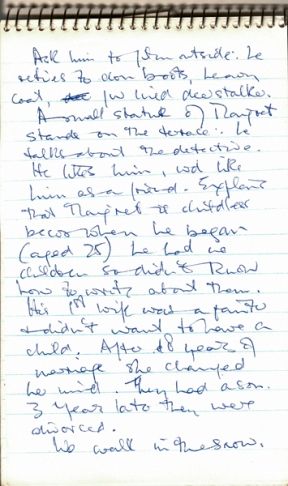 Ask him to film outside. He
retires to don boots, heavy
coat, fur lined deerstalker.
A small statue of Maigret
stands on the terrace. He
talks about the detective.
He likes him, wd like
him as a friend. Explains
that Maigret is childless
because when he began
(aged 25) he had no
children so didn't know
how to write about them.
His 1st wife was a painter
& didn't want to have a
child. After 18 years of
marriage she changed
her mind. They had a son.
3 years later they were
divorced.
We walk in the snow.